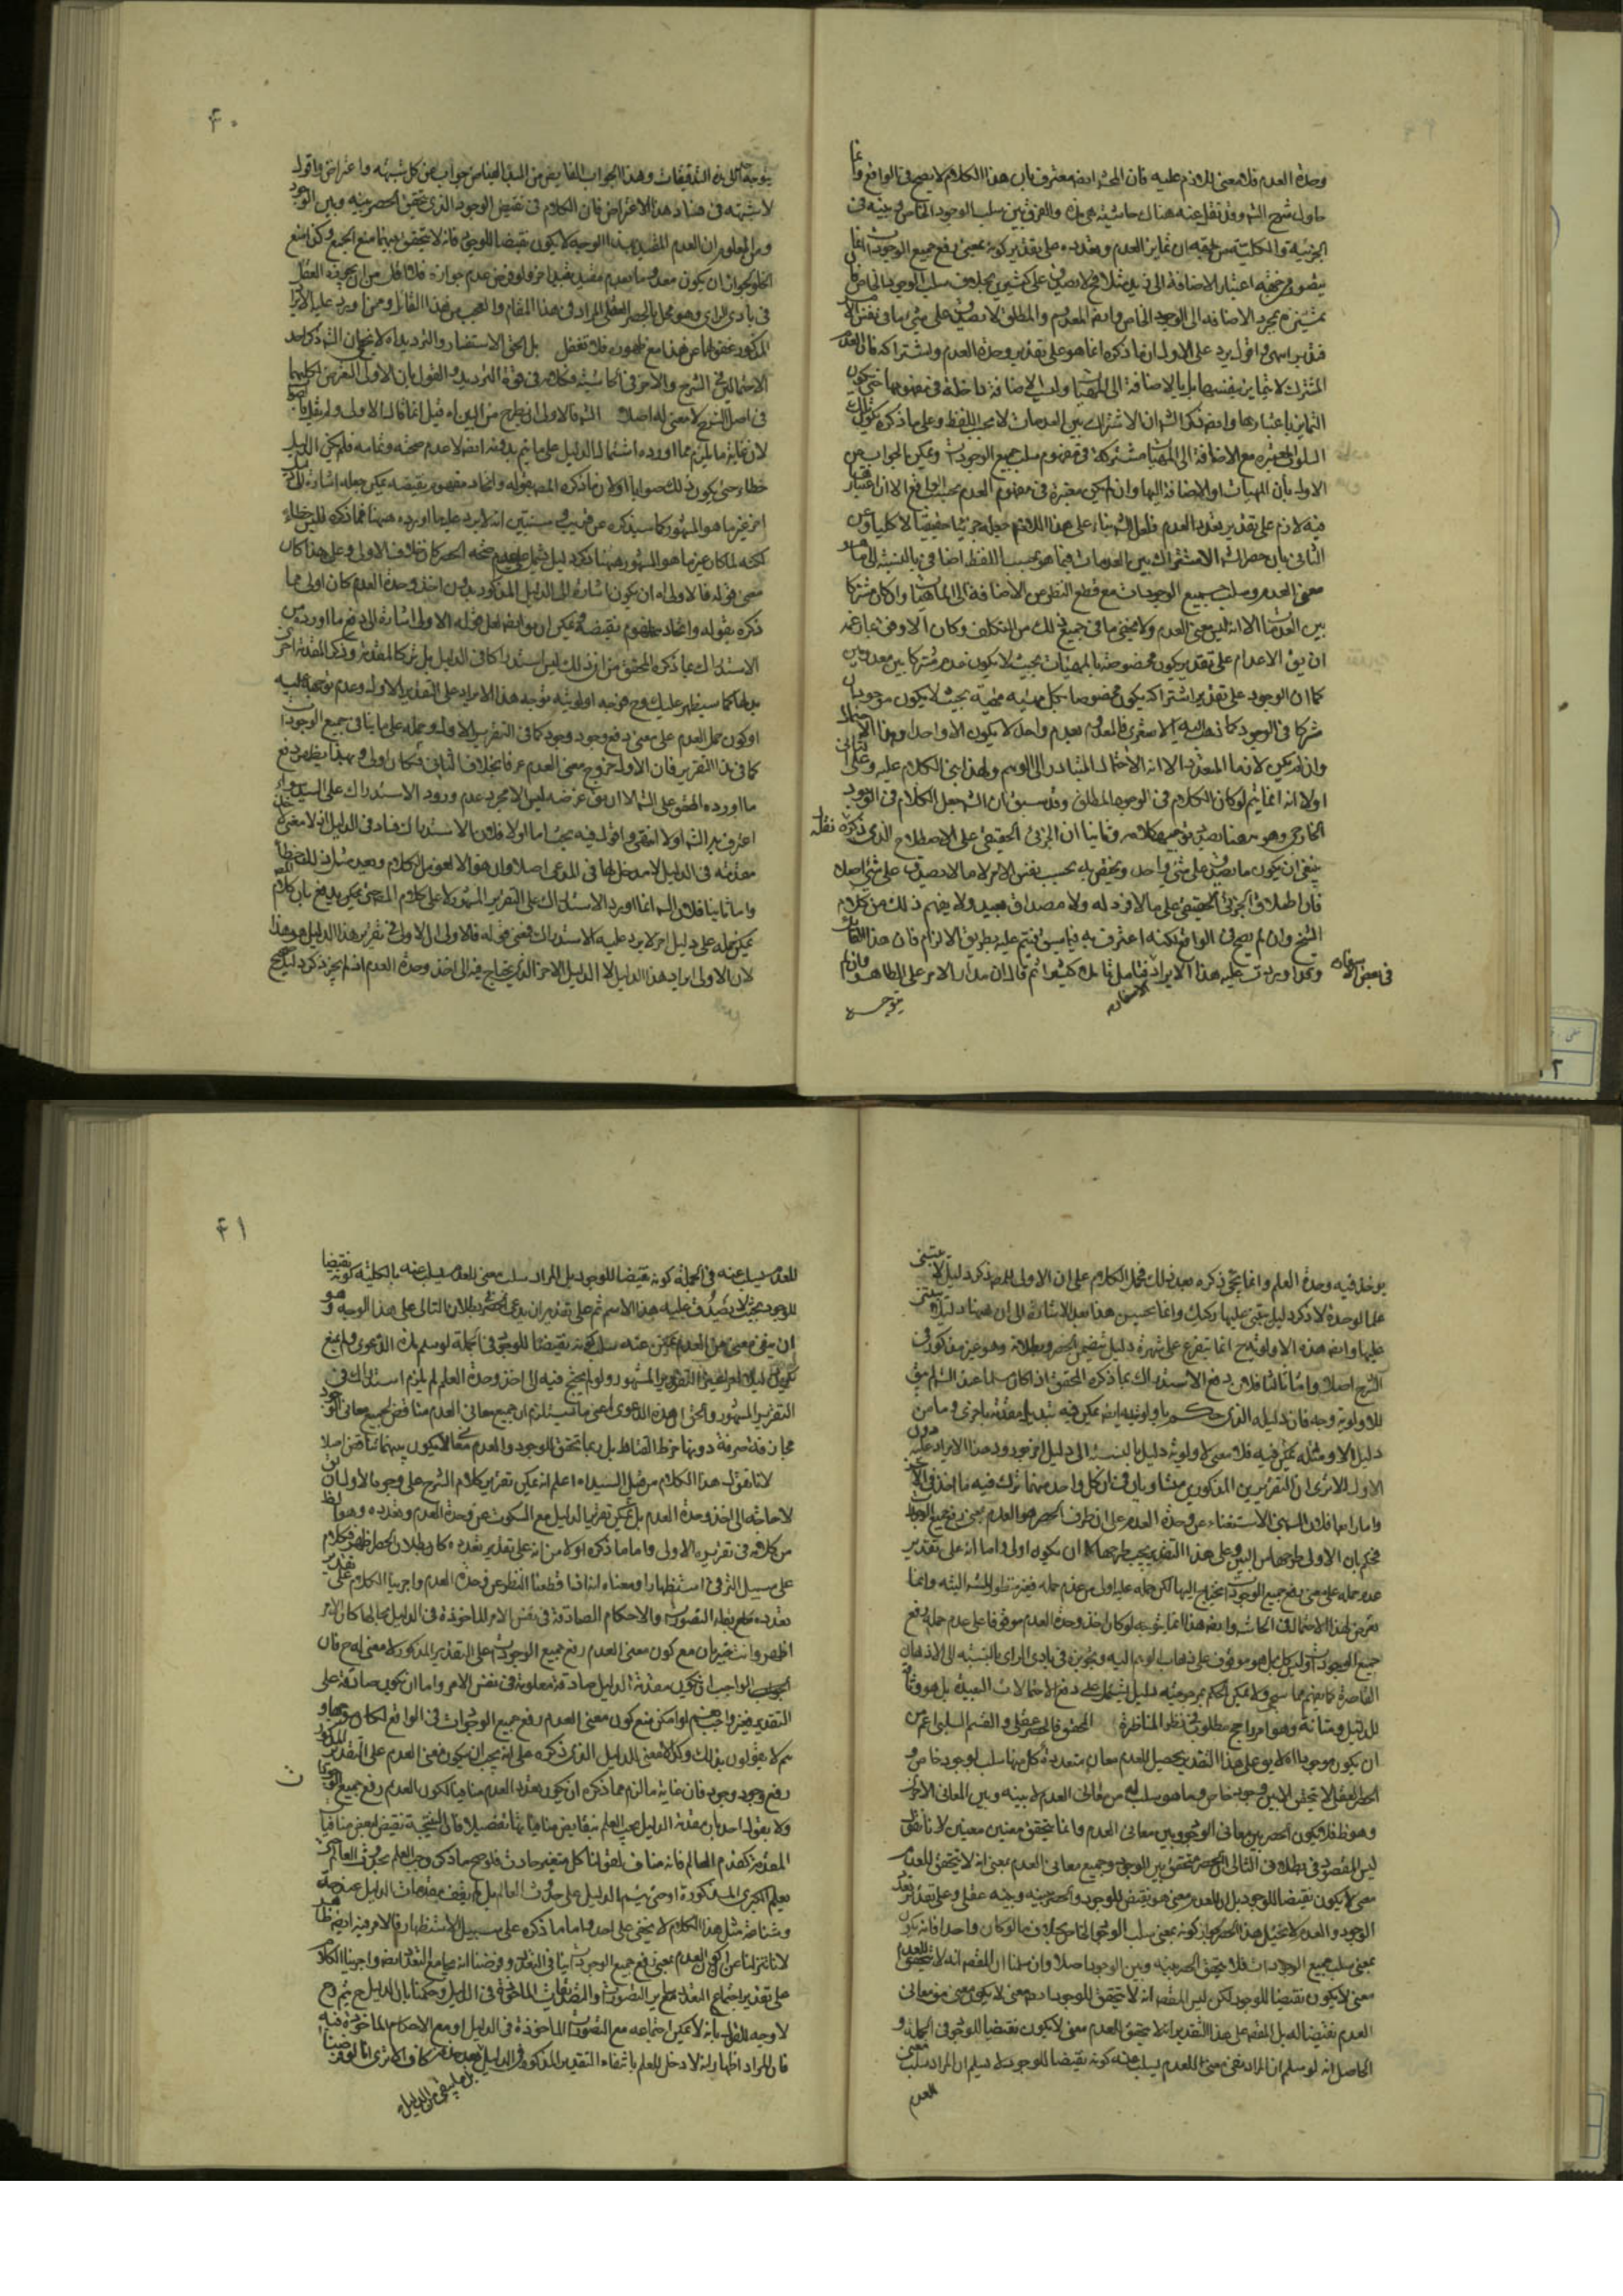 وحدة العدم فلا معنى للازم عليه فان المحشى ايضا معترف بان هذا الكلام لا يصح فى الواقع وانما
حاول شرح الش وقد نقل عنه هناك حاشية هى هذه والفرق بين سلب الوجود الخاص
الجزئية والكلية تمايز العدم وتعدده على تقدير كونه بمعنى رفع جميع الوجودات انما
يتصور من جهة اعتبار الاضافة الى زيد مثلا فلا يصدق على كثيرين بخلاف سلب الوجود الخاص
بمجرد الاضافة الى الوجود الخاص وايضا المعدوم المطلق لا يصدق على شىء ما فى نفس الامر
فتدبر انتهى واقول يرد على الاول ان ما ذكره انما هو على تقدير وحدة العدم واشتراكه فان العدم
المشترك لا يتمايز بنفسه بل بالاضافة الى المهيات وليست الاضافة داخلة فى مفهومها حتى يكون
التمايز باعتبارها وايضا ذكر الش ان الاشتراك بين العدمات لا بحسب اللفظ وعلى ما ذكره يكون
السلوب المعتبرة مع الاضافة الى المهيات مشتركة فى مفهوم سلب جميع الوجودات ويمكن الجواب عن
الاول بان المهيات او الاضافة اليها وان لم يكن معتبرة فى مفهوم العدم بحسب الواقع الا ان اعتبار
فيه لازم على تقدير تعدد العدم فلعل الش بناء على هذا اللازم جعله جزئيا حقيقيا لا كليا وعن
الثانى بان حصر الاشتراك بين العدمات فيما هو بحسب اللفظ اضافى بالنسبة الى ما هو
معنى العدم وسلب جميع الوجودات مع قطع النظر عن الاضافة الى الماهيات وان كان مشتركا
بين العدمات الا انه ليس معنى العدم ولا يخفى ما فى جميع ذلك من التكلف وكان الاوفق بعبارته
ان يق الاعدام على تقدير يكون مخصوصة بالمهيات بحيث لا يكون عدم مشتركا بين معدومين
كما ان الوجود على تقدير اشتراكه يكون مخصوصا بكل مهية مهية بحيث لا يكون موجودان
شركا فى الوجود كما ذهب اليه الاشعرى فالمعدوم بعدم واحد لا يكون الا واحدا وهذا الاحتمال
وان لم يكن لازما المتعدد الا انه الاحتمال المتبادر الى الوهم ولهذا ابنى الكلام عليه وعلى الثانى
اولا انه انما يتم لو كان الكلام فى الوجود المطلق وقد سبق ان الش جعل الكلام فى الوجود
الخارجى وهو ههنا بصدد توجيه كلامه وثانيا ان الجزئى الحقيقى على الاصطلاح الذى ذكره نقله
ينبغى ان يكون ما يصدق على شىء واحد ويختص به بحسب نفس الامر لا ما لا يصدق على شىء اصلا
فان اطلاق الجزئى الحقيقى على ما لا فرد له ولا مصداق بعيد ولا يفهم ذلك من كلام
الشيخ وان لم يصح فى الواقع لكنه اعترف به فيتم عليه بطريق الالزام فان هذا القائل
فى بعض الاسفار وقد اوردت عليه هذا الايراد فتامل تاملا كثيرا ثم قال ان مدار الامر على الظاهر وانه لم
توجه
۴۰
الى هذه التدقيقات وهذا الجواب الفايض من المبدا الفياض جواب عن كل شبهة واعتراض واقول
لا شبهة فى فساد هذا الاعتراض فان الكلام فى نقيض الوجود الذى تحقق الحصر بينه وبين الوجود
ومن المعلوم ان العدم المقيد بهذا الوجه لا يكون نقيضا للوجود فانه لا يتحقق بينهما منع الجمع ولكن منع
الخلو لجواز ان يكون معدوما بعدم مقيد بقيد اخر ولو فرض عدم جوازه فلا اقل من ان يجوزه العقل
فى بادى الراى وهو مخل بالحصر العقلى المراد فى هذا المقام والعجب من هذا القائل وممن اورد عليه الايراد
المذكور غفولهما عن هذا مع ظهوره فلا تغفل بل الحق الاستفسار والترديد اه لا يخفى ان الش ذكر احد
الاحتمالين فى الشرح والاخر فى الحاشية فكلامه فى قوة الترديد والقول بان الاولى التعرض لكليهما
فى اصل الشرح لا معنى له اصلا الش فالاولى ان يطرح من البين اه قيل انما قال الاولى ولم يقل
لان غاية ما يلزم مما اورده اشتمال الدليل على ما يتم بدونه ايضا لا عدم صحته وتمامه فلم يكن الدليل
خطاء حتى يكون ذلك صوابا اولا ن ما ذكره المص بقوله واتحاد مفهوم نقيضه يمكن جعله اشارة الى دليل
اخر غير ما هو المشهور كما سيذكره عن قريب وسنبين انه لا يرد عليه ما اورده ههنا فما ذكره ليس خطاء
لكنه لما كان غير ما هو المشهور
معنى قوله فالاولى اه ان يكون اشارة الى الدليل المذكور بدون اخذ وحدة العدم كان اولى مما
ذكره بقوله واتحاد مفهوم نقيضه ويمكن ان يق ايضا لعل قوله الاولى اشارة الى دفع ما اورد من
الاستدراك بما ذكره المحقق من ان ذلك ليس استدراكا فى الدليل بل تركا لمقدمة وذكر المقدمة اخرى
بدلها كما سيظهر عليك وح فوجه اولوية توجيه هذا الايراد على التقدير الاول وعدم توجهه عليه
او كون حمل العدم على معنى رفع وجود وجود كما فى التقرير الاول وحمله على ما ينافى جميع الوجودات
كما فى هذا التقرير فان الاول خروج معنى العدم عرفا بخلاف الثانى فكان اولى وبهذا يظهر دفع
ما اورده المحقق على الش الا ان يق غرضه ليس الا مجرد عدم ورود الاستدراك على السيد
اعترف به الش اولا انتهى واقول فيه بحث اما اولا فلان الاستدراك فساد فى الدليل اذ لا معنى لاخذ
مقدمة فى الدليل لا مدخل لها فى المدعى اصلا وان هو الا لغو من الكلام
واما ثانيا فلان الش انما اورد الاستدراك على التقرير المشهور لا على كلام المص حتى يمكن دفع بان كلام
يمكن حمله على دليل اخر لا يرد عليه الاستدراك فمعنى قوله فالاولى ان الاولى فى تقرير هذا الدليل هو هذا
لان الاولى ايراد هذا الدليل لا الدليل الاخر الذى يحتاج فيه الى اخذ وحدة العدم اذ لم يجز ذكر دليل
يوخذ فيه وحدة العلم وانما يجئ ذكره بعد ذلك فحمل الكلام على ان الاولى للمص ذكر دليل لا يبتنى
على الوحدة لا ذكر دليل يبتنى عليها ركيك وانما يحسن هذا بعد الاشارة الى ان ههنا دليلا يبتنى
عليها وايضا هذه الاولوية ح انما يتفرع على شهرة دليل يتضمن الحصر وبطلانه وهو غير مذكور فى
الشرح اصلا واما ثالثا فلان دفع الاستدراك بما ذكره المحقق اذا كان مسلما عند الش لم يبق
للاولوية وجه فان دليله الذى حكم باولويته ايضا يمكن فيه تبديل مقدمة باخرى وما من
دليل الا ومثله يمكن فيه فلا معنى لاولوية دليل بالنسبة الى دليل اخر بورود هذا الايراد عليه دون
الاول الا ترى ان التقريرين المذكورين متساويان فى ان كل واحد منهما ترك فيه ما اخذ فى الاخر
واما رابعا فلان السيد ابتنى الاستغناء عن وحدة العدم على ان طرف الحصر هو العدم بمعنى رفع جميع الوجودات
فحكم بان الاولى طرحها من البين وعلى هذا التقدير يجب طرحها لا ان يكون اولى واما انه على تقدير
عدم حمله على معنى رفع جميع الوجودات احتيج اليها لكن حمله عليه اولى من عدم حمله فغير منظور الش البتة وانما
تعرض لهذا الاحتمال فى الحاشية وايضا هذا انما يتوجه لو كان اخذ وحدة العدم موقوفا على عدم حمله رفع
جميع الوجودات وليس كذلك بل هو موقوف على ذهاب الوهم اليه وتجويزه فى بادى الراى بالنسبة الى الاذهان
القاصرة كما يفهم مما سيجئ ولا يمكن الحكم بمرجوحية دليل يشتمل على دفع الاحتمالات البعيدة بل هو وثاقة
للدليل ومتانة وهو امر راجح مطلوب فى نظر المناظرة المحقق فالحصر عقلى والقسم السلبى اعم من
ان يكون موجودا اه لا يق على هذا التقدير يحصل للعدم معان متعددة كل منها سلب لوجود خاص و
الحصر العقلى لا يتحقق الا بين وجود خاص وما هو سلب له من معانى العدم لا بينه وبين المعانى الاخر
وهو ظ فلا يكون الحصر بين معانى الوجود وبين معانى العدم وانما يتحقق بين معنيين معينين لانا نقول
ليس المقصود فى بطلان التالى ان الحصر متحقق بين الوجود وجميع معانى العدم بمعنى انه لا يتحقق للعدم
معنى لا يكون نقيضا للوجود بل ان للعدم معنى هو نقيض للوجود والحصر بينه وبينه عقلى وعلى تقدير تعدد
الوجود والعدم لا يختل هذا الحصر لجواز كونه بمعنى سلب الوجود الخاص بخلاف ما لو كان واحدا فانه يكون
بمعنى سلب جميع الوجودات فلا يتحقق الحصر بينه وبين الوجود اصلا وان سلمنا ان المقصد انه لا يتحقق للعدم
معنى لا يكون نقيضا للوجود لكن ليس المقصد انه لا يتحقق للوجود ايضا معنى لا يكون معنى من معانى
العدم نقيضا له بل المقصد على هذا التقدير انه لا يتحقق العدم معنى لا يكون نقيضا للوجود فى الجملة و
الحاصل انه لو سلم ان المراد نفى معنى للعدم يسلب عنه كونه نقيضا للوجود فلا نسلم ان المراد سلب معنى
العدم
۴۱
للعدم يسلب عنه فى الجملة كونه نقيضا للوجود بل المراد سلب معنى للعدم يسلب عنه بالكلية كونه نقيضا
للوجود بحيث لا يصدق عليه هذا الاسم ثم على تقدير ان يدعى الحصر بطلان التالى على هذا الوجه وهو
ان ينفى معنى من العدم يمكن عنه سلب كونه نقيضا للوجود فى الجملة لو سلم هذه الدعوى ولم يمنع
يكون دليلا اخر غير التقرير المشهور ولو لم يحتج فيه الى اخذ وحدة العلم لم يلزم استدراك فى
التقرير المشهور والحق ان هذه الدعوى اعنى ما يستلزم ان جميع معانى العدم مناقض لجميع معانى الوجود
مجازفة صرفة دونها خرط القتاد بل ربما تحقق للوجود والعدم معان لا يكون بينهما تناقض اصلا
لانا نقول هذا الكلام من قبل السيد اه اعلم انه يمكن تقرير كلام الشرح على وجوه الاول ان
لا حاجة الى اخذ وحدة العدم بل يمكن تقرير الدليل مع السكوت عن وحدة العدم وتعدده وهو الظ
من كلامه فى تقريره الاولى واما ما ذكره اولا من انه على تقدير تعدده كان بطلان الحصر اظهر فكلام
على سبيل الترقى استظهارا ومعناه اننا اذا قطعنا النظر عن وحدة العدم واجرينا الكلام على تقدير
تعدده والاحكام الصادقة فى نفس الامر الماخوذة فى الدليل بحالها كان الامر
اظهر وانت خبير بان مع كون معنى العدم رفع جميع الوجودات على التقدير المذكور لا معنى له ح فان
الواجب ان يكون مقدمة الدليل صادقة معلومة فى نفس الامر واما ان يكون صادقة على
التقدير فغير واجب نعم لو امكن منع كون معنى العدم رفع جميع الوجودات فى الواقع لكان
هم لا يقولون بذلك وكذلك معنى الدليل الذى ذكره على انه يجب ان يكون معنى العدم على التقدير المذكور
رفع وجود وجود فان غاية ما لزم مما ذكره ان يكون تعدد العدم منافيا لكون العدم رفع جميع الوجودات
ولا يقول احد بان مقدمة الدليل يجب العلم بنقايض منافياتها تفصيلا فان النتيجة نقيض لبعض منافيا
المقدمة كقدم العالم فانه مناف لقولنا كل متغير حادث فلو صح ما ذكره وجب العلم بحدوث العالم
يعلم الكبرى المذكورة وحتى يتم الدليل على حدوث العالم بل لم يقف مقدمات الدليل عند حد
وشناعة مثل هذا الكلام لا يخفى على احد واما ما ذكره على سبيل الاستظهار فالامر فيه ايضا ظاهر
لانا تنزلنا عن كون العدم بمعنى رفع جميع الوجودات ينافى التعدد وفرضنا انه يجامع التعدد ايضا واجرينا الكلام
على تقدير اجتماع التعدد مع التصورات والتصديقات الماخوذة فى الدليل وحكمنا بان الدليل ح يتم وح
لا وجه للقول بانه لا يمكن اجتماعه مع التصورات الماخوذة فى الدليل او مع الاحكام الماخوذة فيه
فان المراد اظهار انه لا دخل للعلم بانتفاء التقدير المذكور فى الدليل